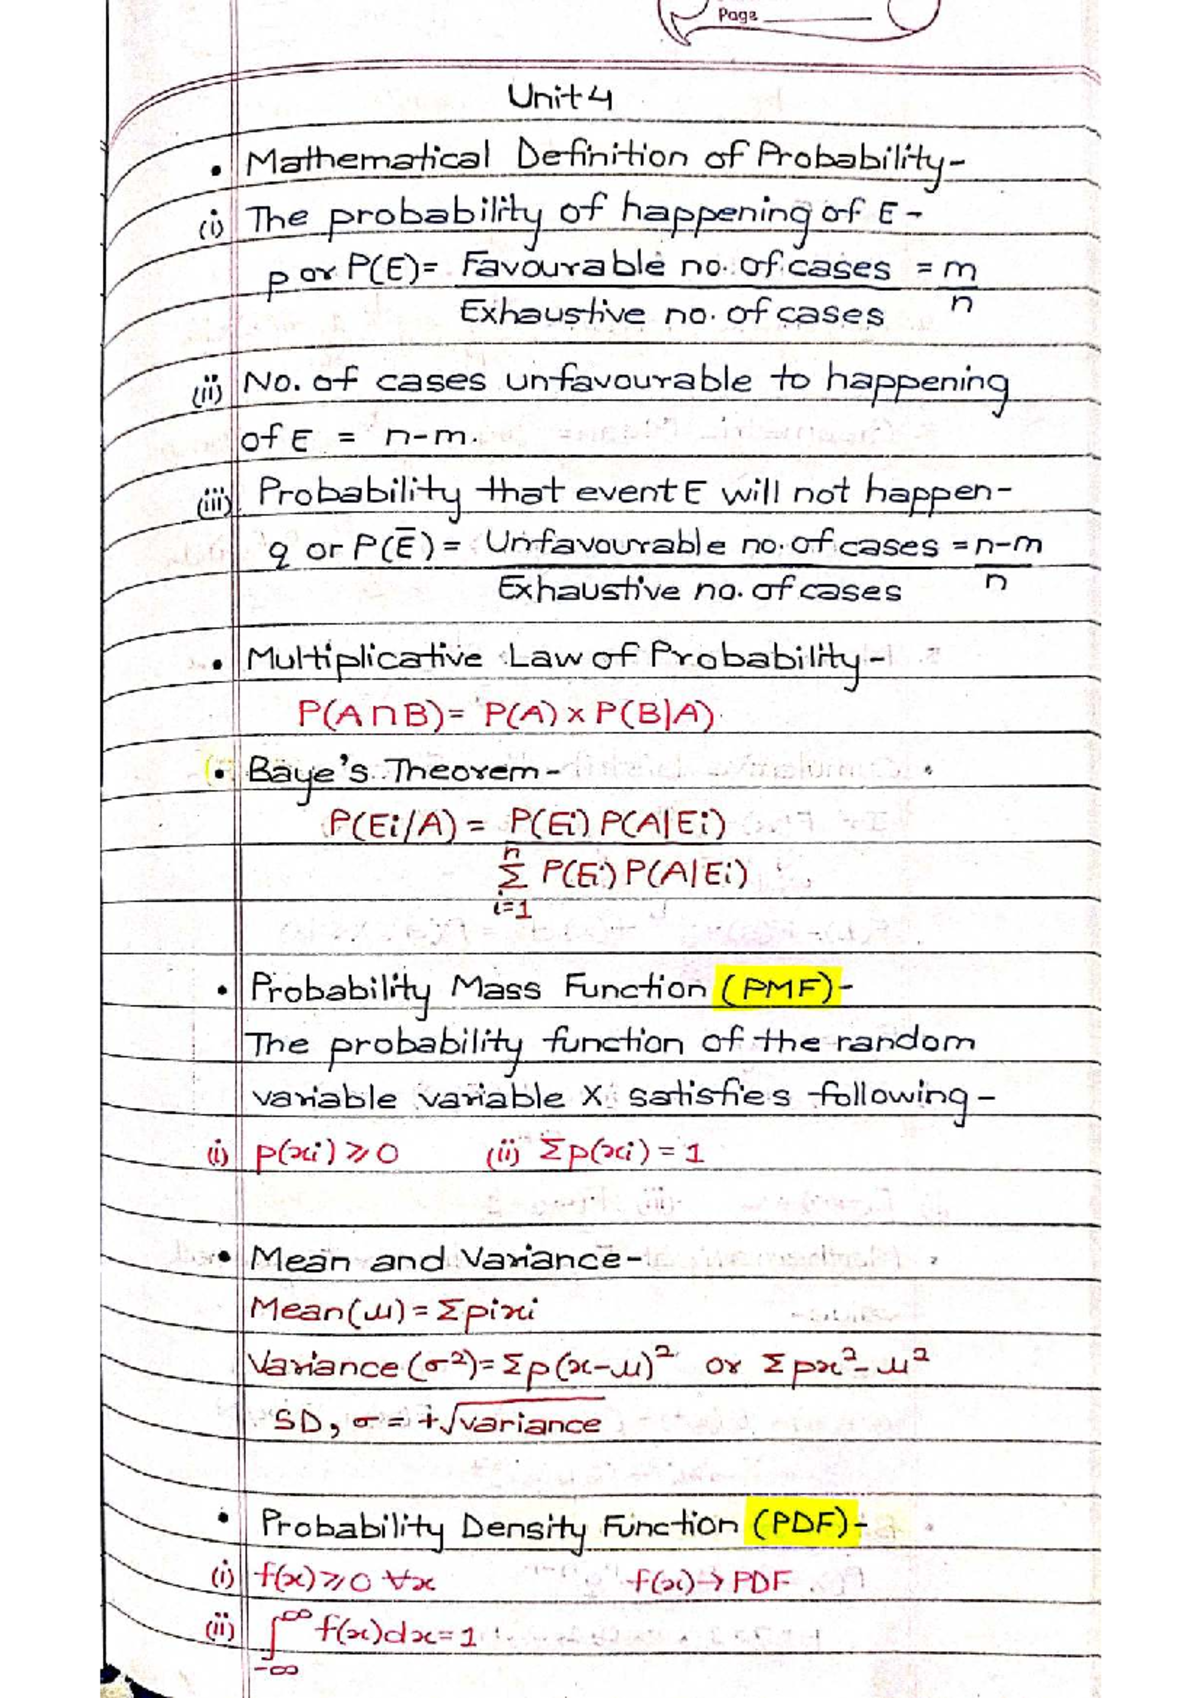 Page
Unit 4
• Mathematical Definition of Probability-
(i) The probability of happening of E -
p or P(E) = Favourable no. of cases = m
Exhaustive no. of cases n
(ii) No. of cases unfavourable to happening
of E = n-m.
(iii) Probability that event E will not happen-
q or P(E̅) = Unfavourable no. of cases = n-m
Exhaustive no. of cases n
• Multiplicative Law of Probability-
P(A∩B) = P(A) x P(B|A)
• Baye's Theorem-
P(Ei/A) = P(Ei) P(A|Ei)
n
Σ P(Ei) P(A|Ei)
i=1
• Probability Mass Function (PMF)-
The probability function of the random
variable variable X satisfies following-
(i) p(xi) ⩾ 0 (ii) Σp(xi) = 1
• Mean and Variance-
Mean(μ) = Σpixi
Variance (σ²) = Σp(x-μ)² or Σpx²-μ²
SD, σ = +√variance
• Probability Density Function (PDF)-
(i) f(x) ⩾ 0 ∀x f(x) → PDF
(ii) ∫^∞ f(x)dx = 1
-∞